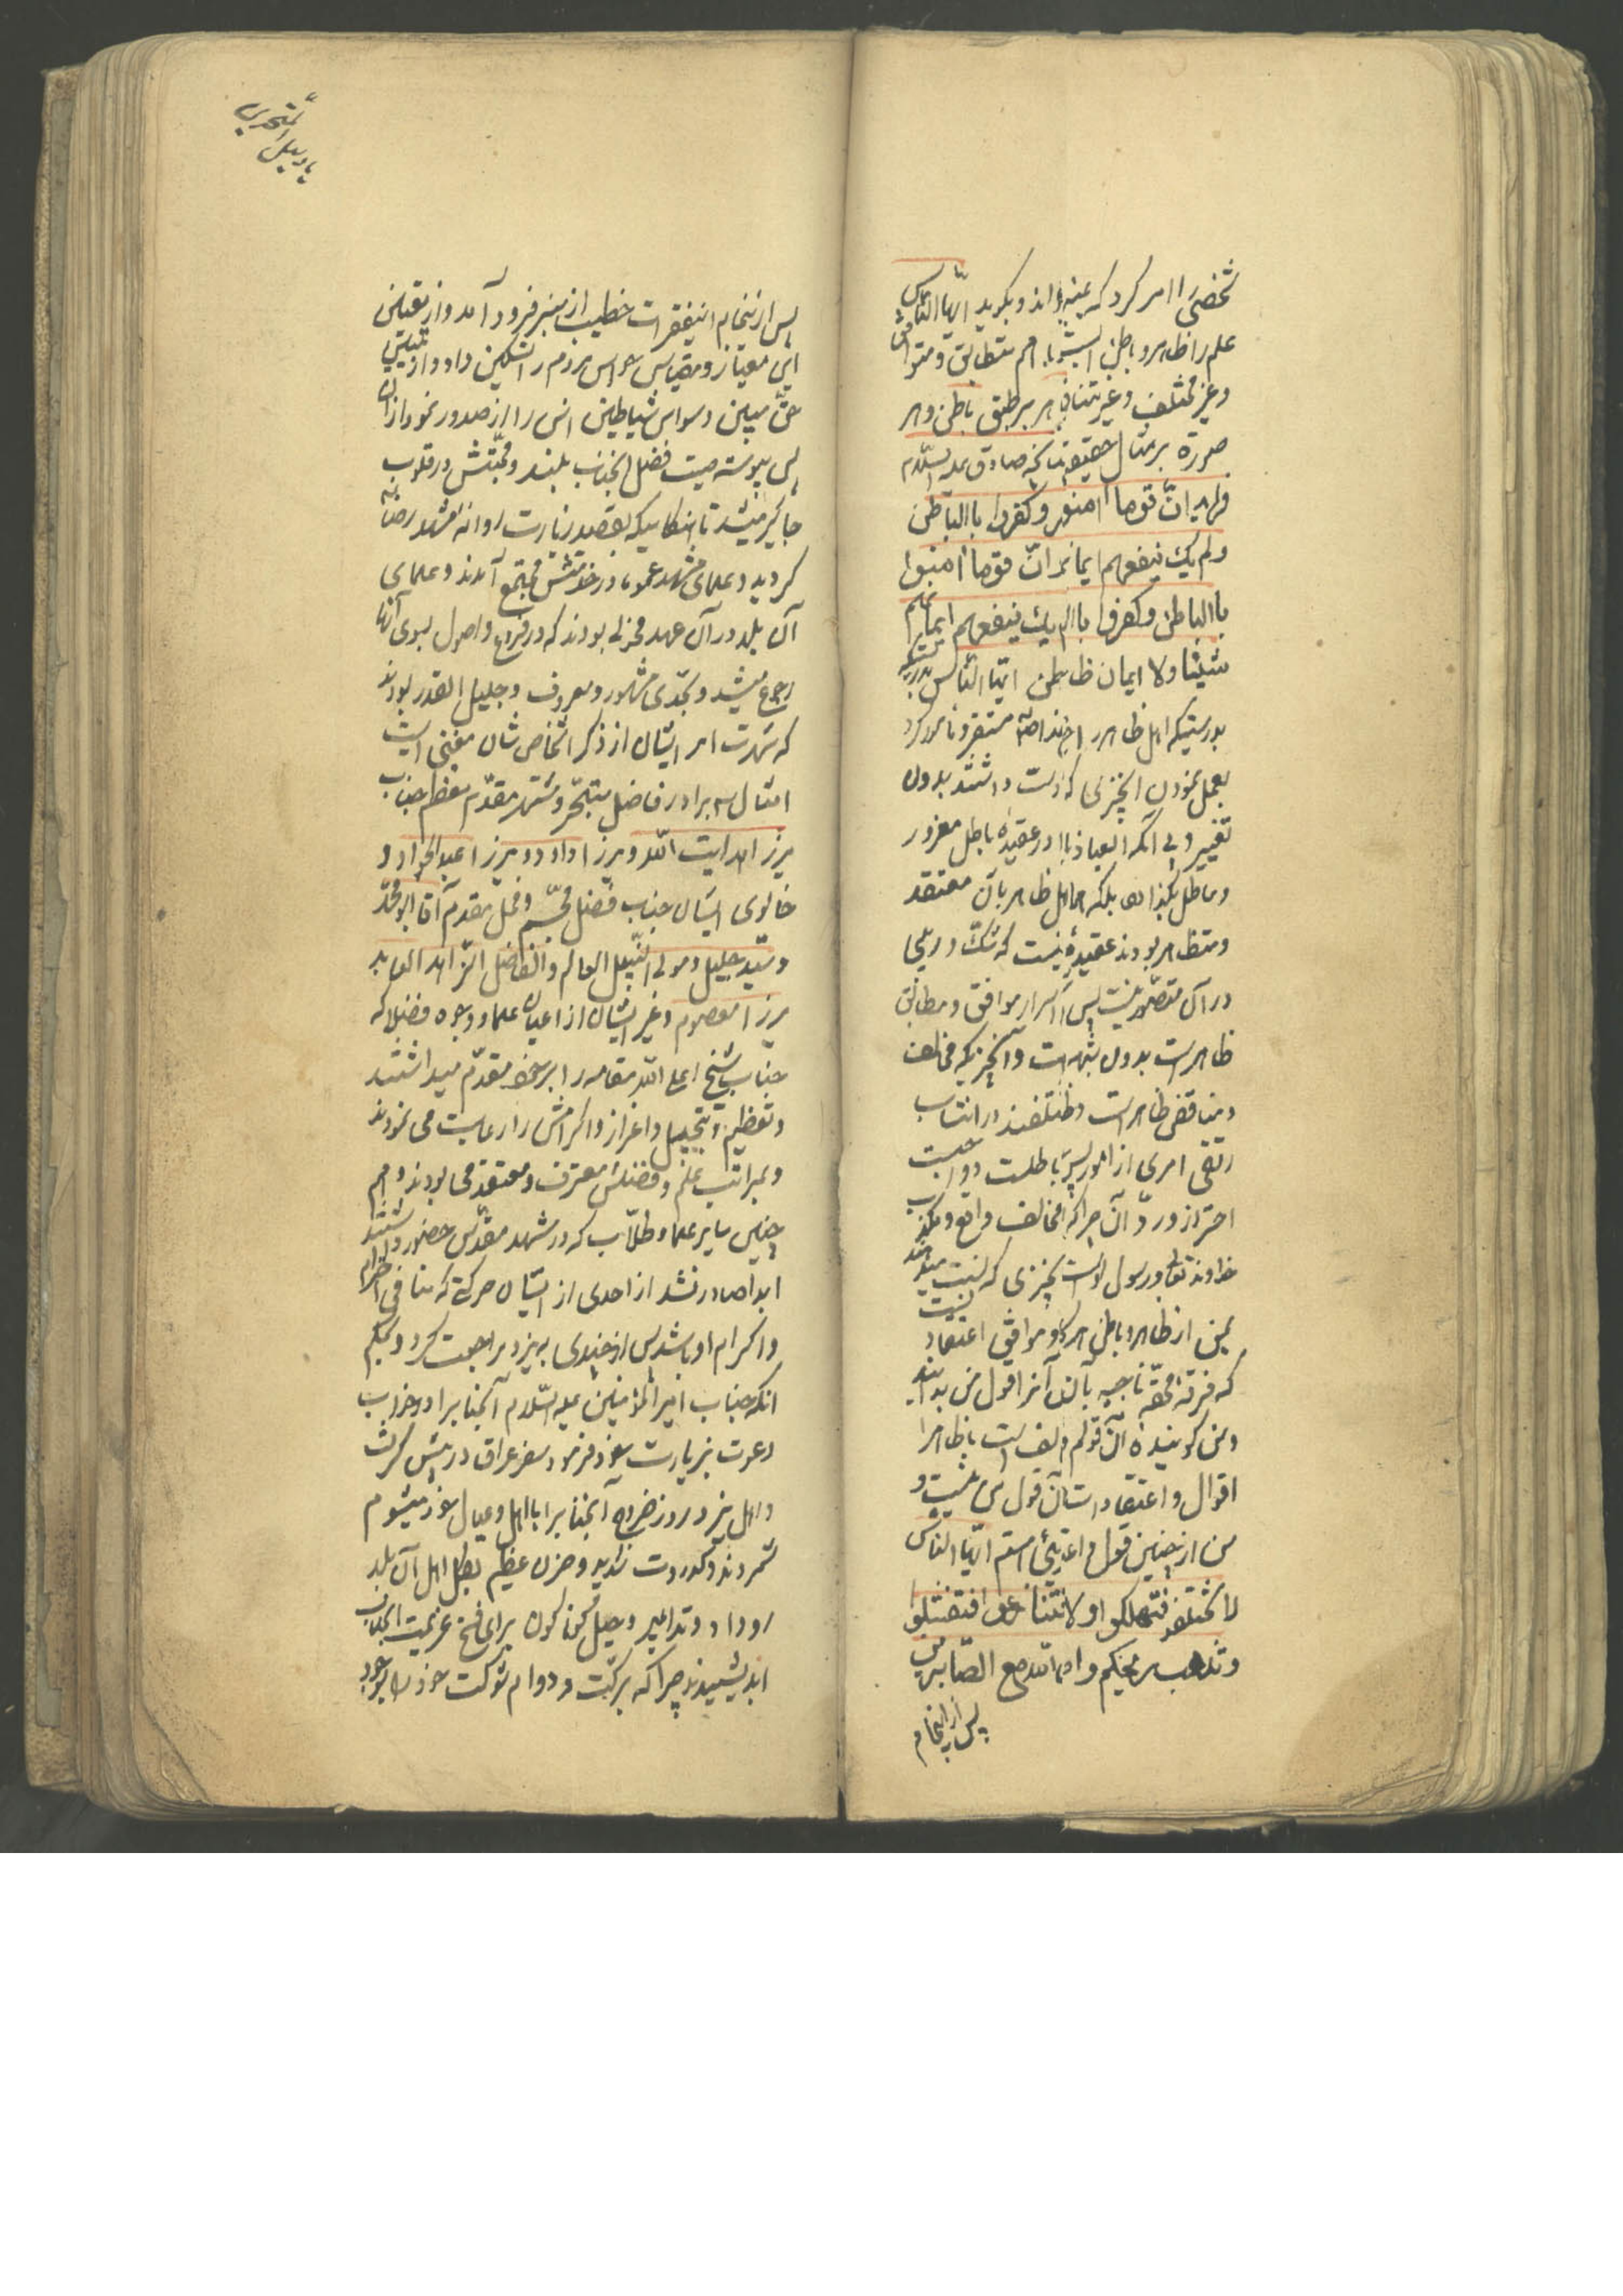 شخصی را امر کرد که بمنبر رود و بگوید ایّها النّاس
علم را ظاهر و باطنی است با هم متطابق و متوافق
و غیر مختلف و غیر متنافی ظاهر بر طبق باطن و هر
صورة بر مثال حقیقت چنانچه صادق علیه السّلام
فرموده انّ قوما امنوا بالظاهر و کفروا باالباطن
و لم یک ینفعهم ایمانهم انّ قوما امنوا
باالباطن و کفروا باالظاهر و لم یک ینفعهم ایمانهم
شیئا ولا ایمان ظاهر باطن ایّها النّاس
بدرستیکه اهل ظاهر را خداوند مستقر و مامور کرد
بعمل نمودن بچیزی که در دست داشتند بدون
تغییر و بی آنکه العیاذ بالله در عقیده باطل مغرور
و باطل بگذارد بلکه اهل ظاهر بآن معتقد
و متظاهر بودند عقیده نیست که شک و ریبی
در آن متصوّر نیست پس اسرار موافق و مطابق
ظاهر است بدون شبهه و آنچیزیکه مخالف
و مناقض ظاهر است و مختلفند در انتساب
رتقی امری از امور پس باطلست و واجبست
احتراز و ردّ آن چرا که مخالف واقع و مکذّب
خداوند تعالی و رسول اوست بچیزی که نسبت میدهند
بمن از ظاهر و باطن هر گاه موافق اعتقاد نیست
که فرقه محقّه ناجیه بآنند آنرا قول من بدانید
و من گوینده آن قولم و هر مخالف است با ظاهر
اقوال و اعتقادات آن قول من نیست و
من از چنین قول و اعتقادی بریستم ایّها النّاس
لا تختلفوا فتهلکوا و لا تنازعوا فتفشلوا
و تذهب ریحکم و انّ الله مع الصّابرین
پس از انجام
پس از انجام اینفقرات خطیب از منبر فرود آمد و از تعیین
این معیار و مقیاس حواس مردم را تسکین داد و از تبیین
حقّ مبین وسواس شیاطین انس را از صدور نمود ازاله
پس پیوسته صیت فضل آنجناب بلند و محبّتش در قلوب
جایگیر میشد تا هنگامیکه بقصد زیارت روانه مشهد رضا
گردید و علمای مشهد عموما در خدمتش مجتمع آمدند و علمای
آن بلد در آن عهد فحولی بودند که در فروع و اصول بسوی آنها
رجوع میشد و بحدّی مشهور و معروف و جلیل القدر بودند
که شهرت امر ایشان از ذکر اشخاص شان مغنی است
امثال سه برادر فاضل متبحّر و مشتهر مقدّم معظم جناب
میرزا هدایت الله و میرزا داود و میرزا عبدالجواد و
خالوی ایشان جناب فضل مجسّم و فحل مقدّم آقا ابو محمّد
و سیّد جلیل و مولی النّبیل العالم و الفاضل الزّاهد العابد
میرزا معصوم و غیر ایشان از اعیان علماء و وجوه فضلا که
جناب شیخ اعلی الله مقامه را بر خود مقدّم میداشتند
و تعظیم و تبجیل و اعزاز و اکرامش را رعایت می نمودند
و بمراتب علم و فضلش معترف و معتقد می بودند و هم
چنین سایر علماء و طلّاب که در مشهد مقدّس حضور داشتند
ابدا صادر نشد از احدی از ایشان حرکتی که منافی احترام
و اکرام او باشد پس از چندی به یزد مراجعت کرد و بحکم
آنکه جناب امیرالمؤمنین علیه السّلام آنجناب را در خواب
دعوت بزیارت خود فرمود سفر عراق در پیش گرفت
و اهل یزد روز خروج آنجناب را با اهل و عیال خود میشوم
شمردند و کدورت شدید و حزن عظیم بکل اهل آن بلد
روداد و تدابیر و حیل گوناگون برای فسخ عزیمت آنجناب
اندیشیدند چرا که برکت و دوام شوکت خود را بوجود